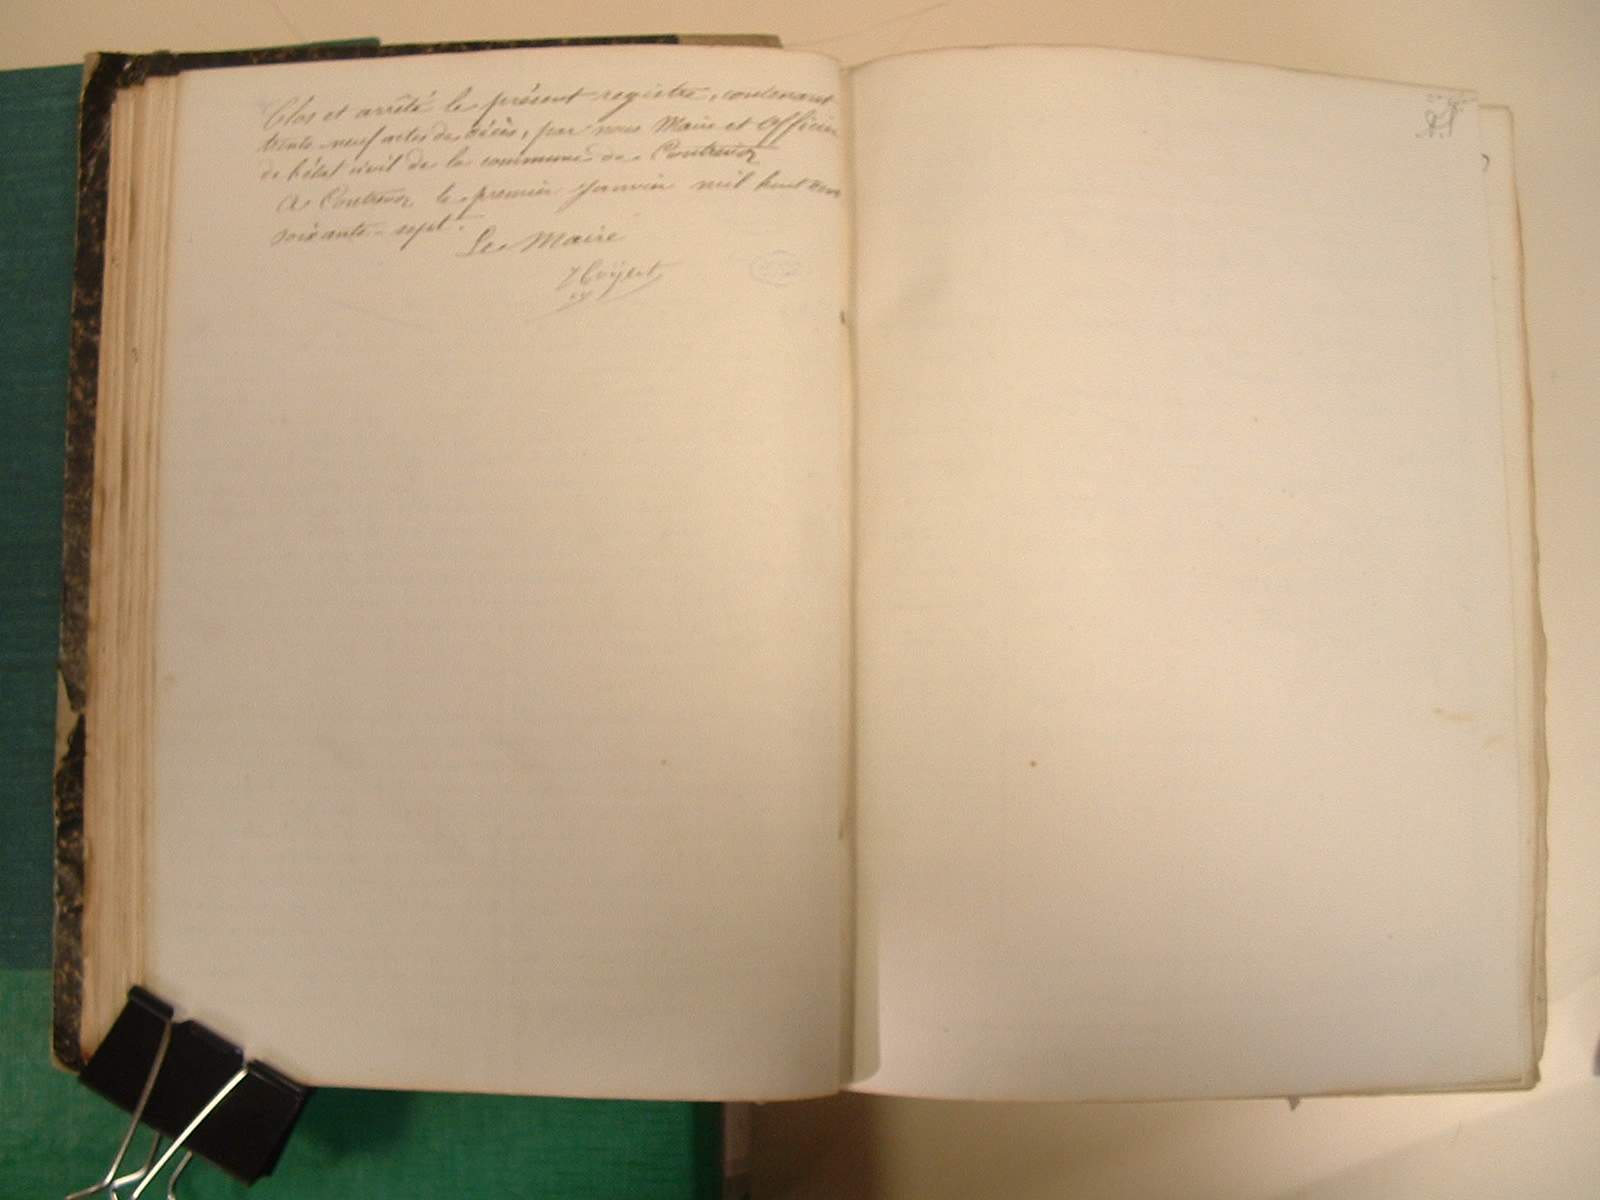 Clos et arrêté le présent registre, contenant
trente-neuf actes de décès, par nous Maire et Officier
de l'état civil de la commune de Contrevoz
A Contrevoz le premier Janvier mil huit cent
soixante-sept.
Le Maire